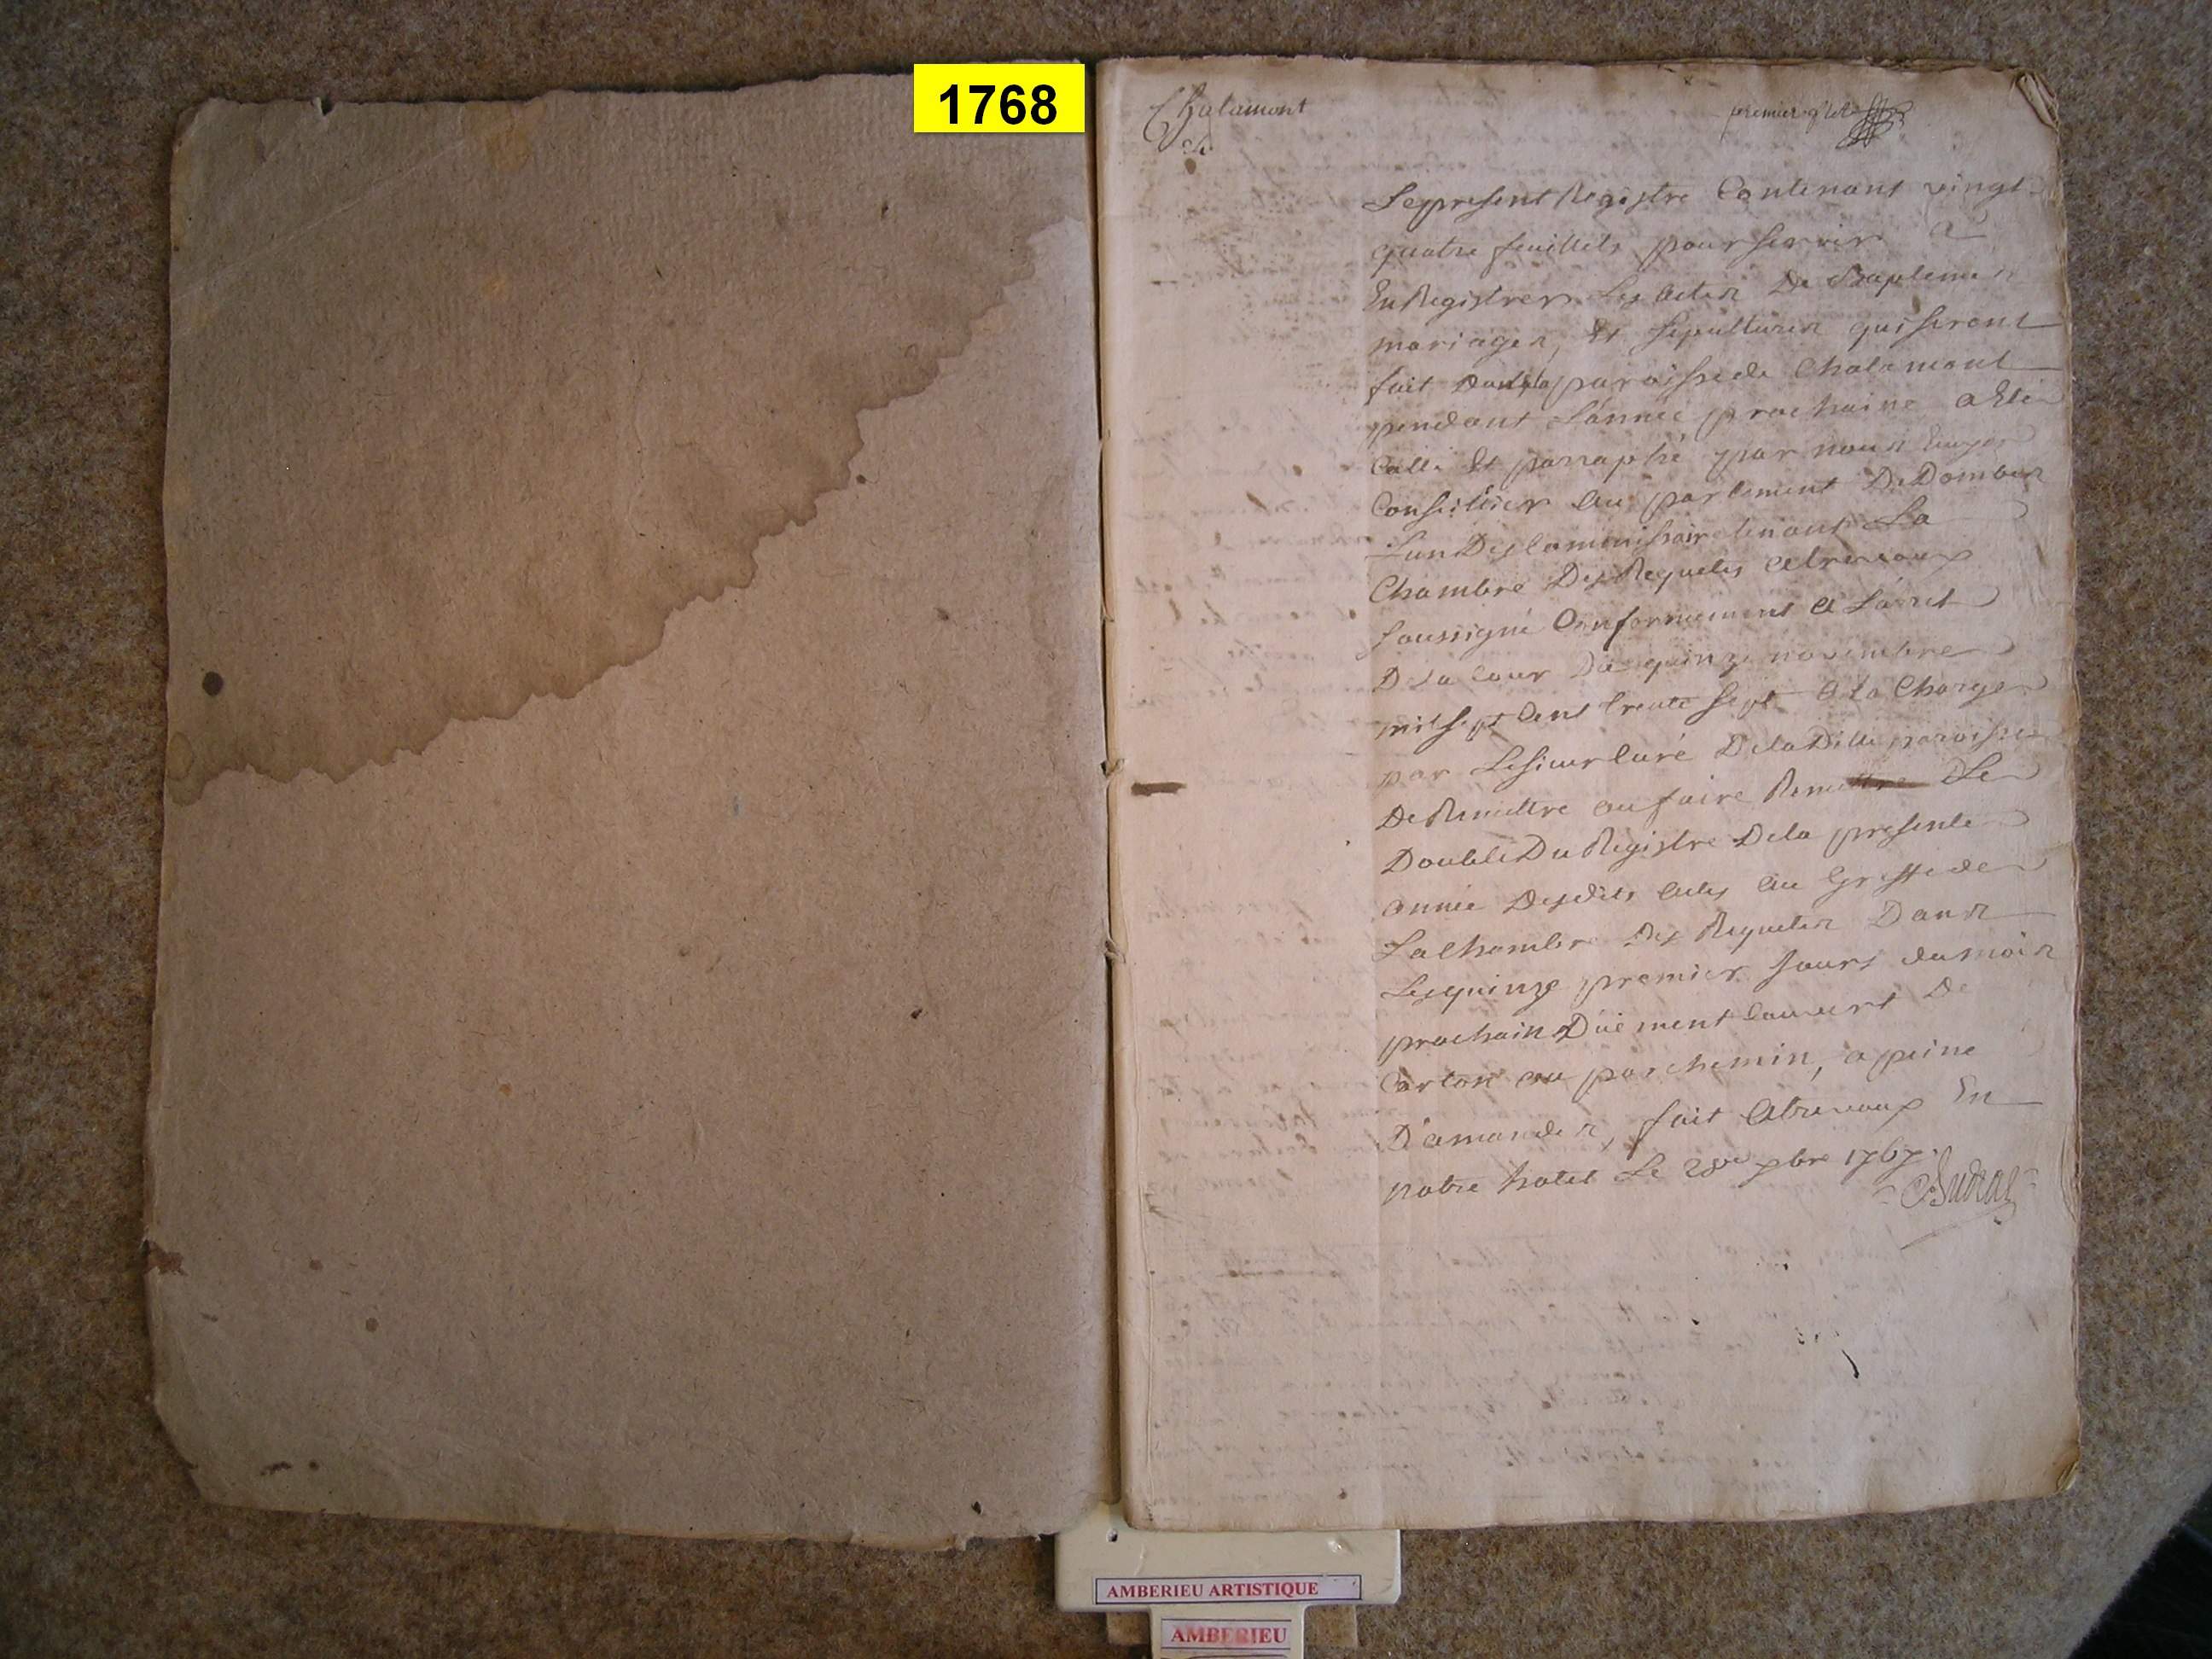 1768
Chalamont
premier
Le present Registre Contenant vingt
quatre feuillets pour servir a
EnRegistrer Les actes De Baptemes
mariages, Et sepultures qui seront
fait Dans la paroisse de Chalamont
pendant L'année prochaine a Eté
Cotté Et parraphé par nous Ecuyer
Conseiller au parlement De Dombes
L'un Des Commissaire tenant La
Chambre Des Requetes a trevoux
soussigné Conformement a L'arret
De La Cour Du quinze novembre
mil sept Cent trente sept a La Charge
par Le sieur Curé De la Ditte paroisse
De Remettre ou faire Remettre Le
Double Du Registre De la presente
année Desdits actes au Greffe de
La Chambre Des Requetes Dans
Les quinze premier Jours du mois
prochain Düement Couvert De
Carton ou parchemin, a peine
D'amandes, fait a trevoux En
notre hotel Le 28e xbre 1767.
AMBERIEU ARTISTIQUE
AMBERIEU